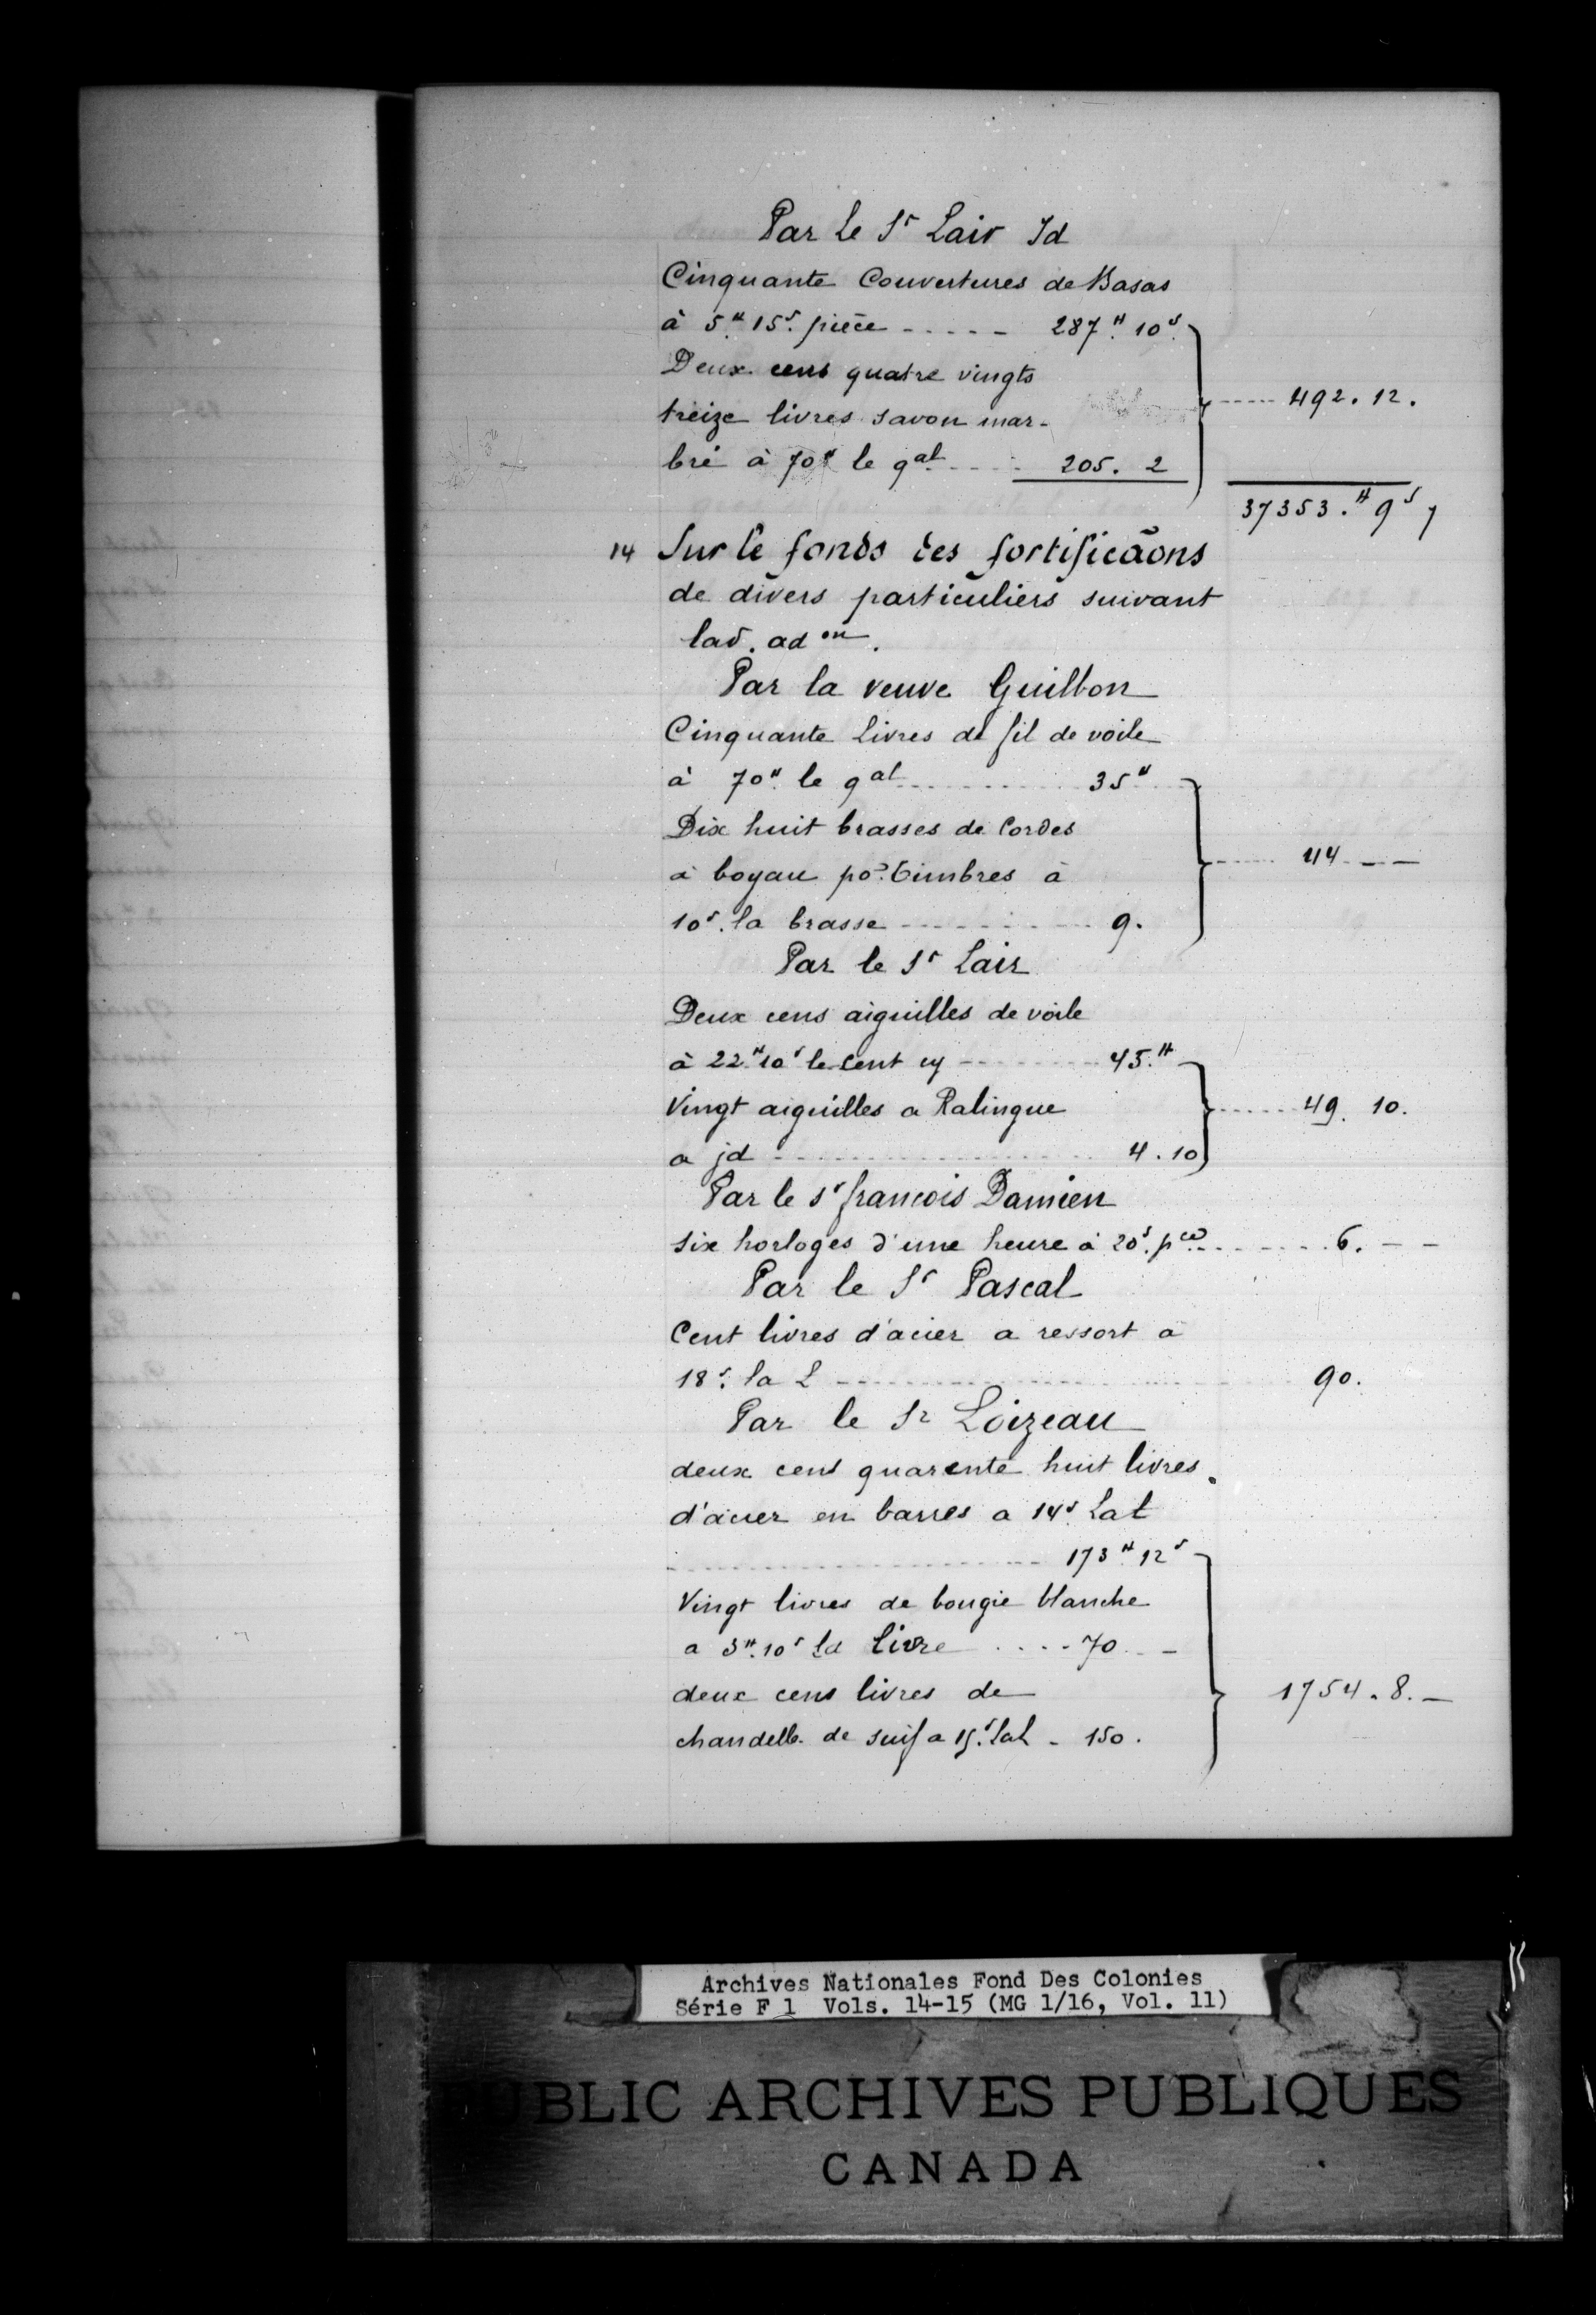 Par Le Sr Lair Id
Cinquante Couvertures de Basas
à 5.# 15s. pièce ----- 287.# 10s.
Deux cens quatre vingts
treize livres savon mar-
bré à 70# le qal ---- 205. 2
----- 492. 12.
37353.# 9s 7
14 Sur le fonds des fortificãons
de divers particuliers suivant
lad. adon.
Par la veuve Guilbon
Cinquante Livres de fil de voile
à 70# le qal ---------- 35#
Dix huit brasses de Cordes
à boyau por. timbres à
10s. la brasse ---------- 9.
----- 44 - -
Par le Sr Lair
Deux cens aiguilles de voile
à 22#10s le Cent cy -------- 45.#
Vingt aiguilles a Ralingue
a jd ---------- 4. 10
----- 49. 10.
Par le sr francois Damien
six horloges d'une heure à 20s. pce ------- 6. - -
Par le Sr Pascal
Cent livres d'acier a ressort a
18s. la L ---------- 90.
Par le Sr Loizeau
deux cens quarente huit livres
d'acier en barres a 14s. La l
---------- 173# 12s
Vingt livres de bougie blanche
a 3#.10s La livre ---- 70 - -
deux cens livres de
chandelle de suif a 15s. la L - 150.
1754. 8. -
Archives Nationales Fond Des Colonies
Série F 1 Vols. 14-15 (MG 1/16, Vol. 11)
PUBLIC ARCHIVES PUBLIQUES
CANADA